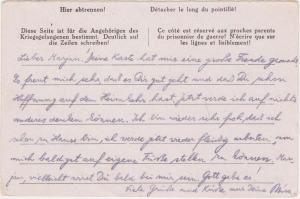 Hier abtrennen!
Détacher le long du pointillé!
Diese Seite ist für die Angehörigen des
Kriegsgefangenen bestimmt. Deutlich auf
die Zeilen schreiben!
Ce côté est réservé aux proches parents
du prisonnier de guerre! N'écrire que sur
les lignes et lisiblement!
Lieber Deine Karte hat mir eine große Freude gemacht
Es freut mich sehr daß es Dir gut geht und daß Du schon
Hoffnung auf dein Heimkehr hast, jetzt werde ich auf nichts
anderes denken können. Ich bin wieder sehr froh daß ich
schon zu Hause bin, ich werde jetzt wieder fleißig arbeiten, um
mich bald gut auf eigene Füße stellen zu können.
vielleicht wirst Du bald bei mir sein Gott gebe es!
Viele Grüße und Küsse von Deine